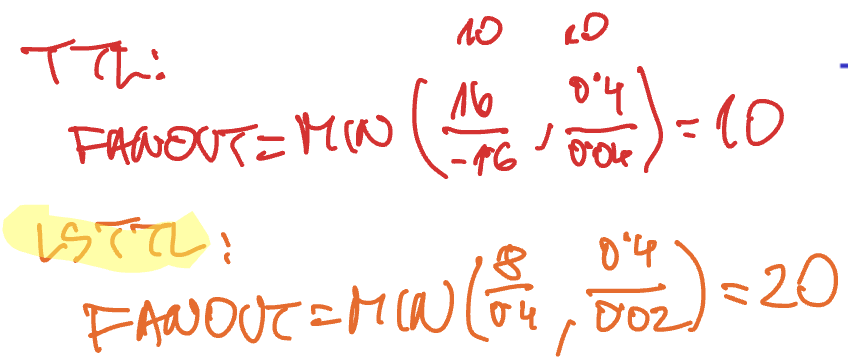 10 10
TTL:
FANOUT = MIN (16/-1'6, 0'4/0'04) = 10
LSTTL:
FANOUT = MIN (8/0'4, 0'4/0'02) = 20